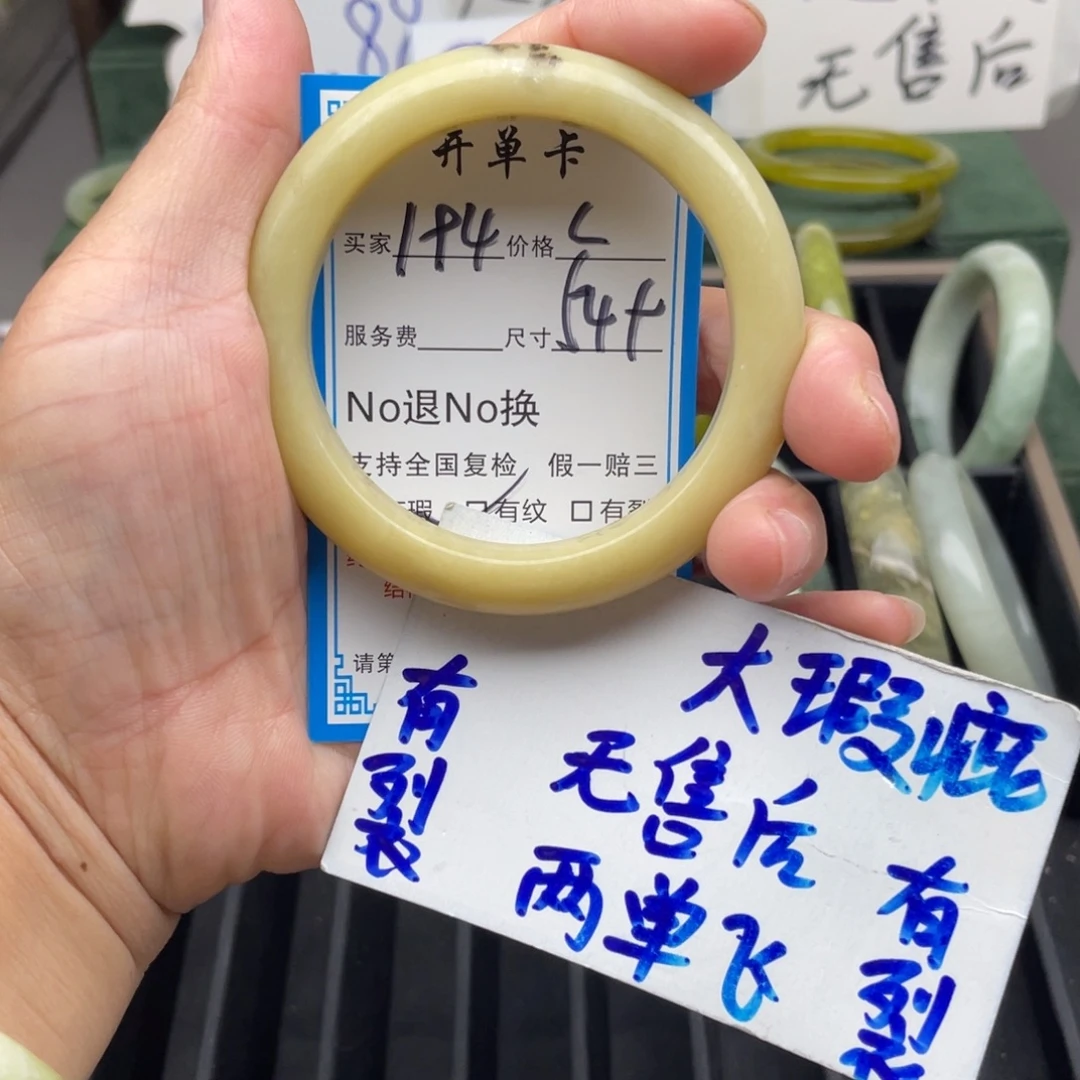 无售后
开单卡
买家 194 价格
服务费 尺寸 54+
No退No换
支持全国复检 假一赔三
瑕 有纹 □有裂
请第
大瑕疵
无售后
两单飞
有裂
有裂